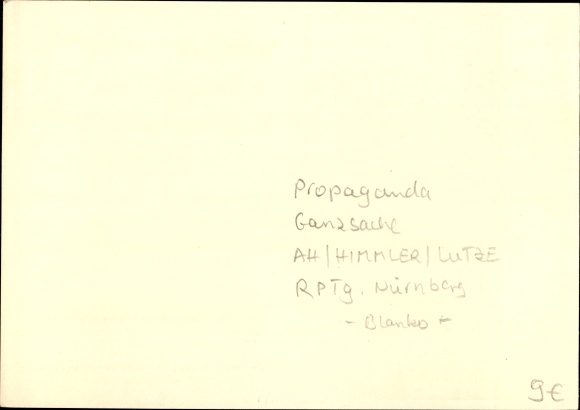 Propaganda
Ganzsache
AH/HIMMLER/LUTZE
RPTg. Nürnberg
- Blanko -
9€